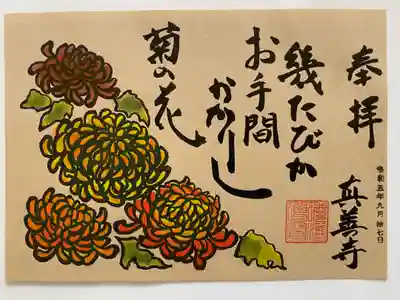 令和五年九月拾七日
奉拝
真善寺
幾たびか
お手間
かかりし
菊の花